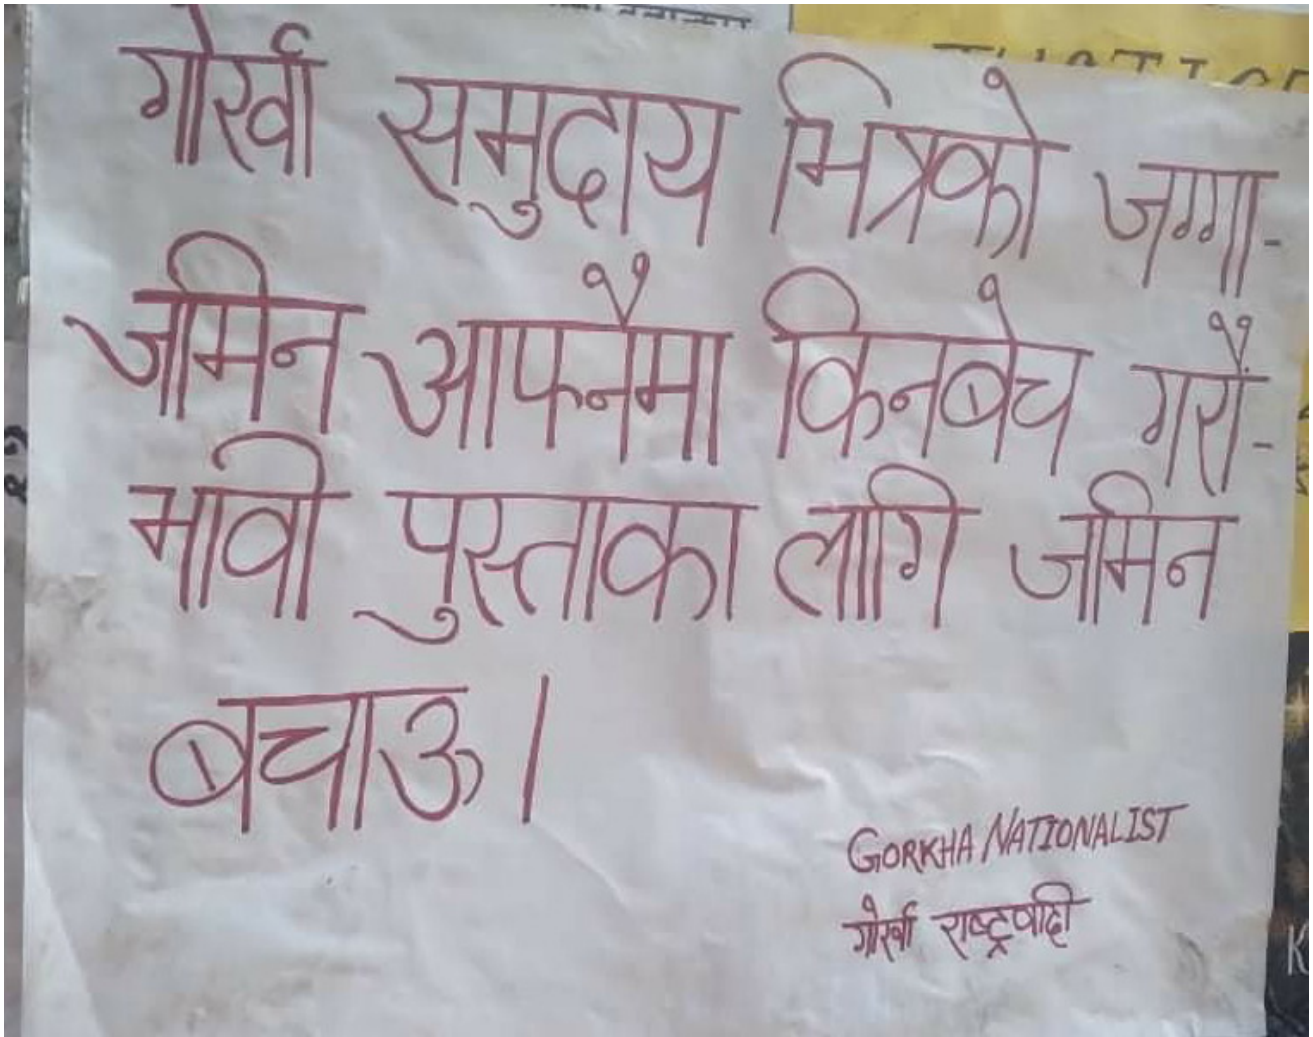 गोर्खा समुदाय भित्रको जग्गा-
जमिन आफ्नैमा किनबेच गरौं-
भावी पुस्ताका लागि जमिन
बचाऊ।
GORKHA NATIONALIST
गोर्खा राष्ट्रवादी